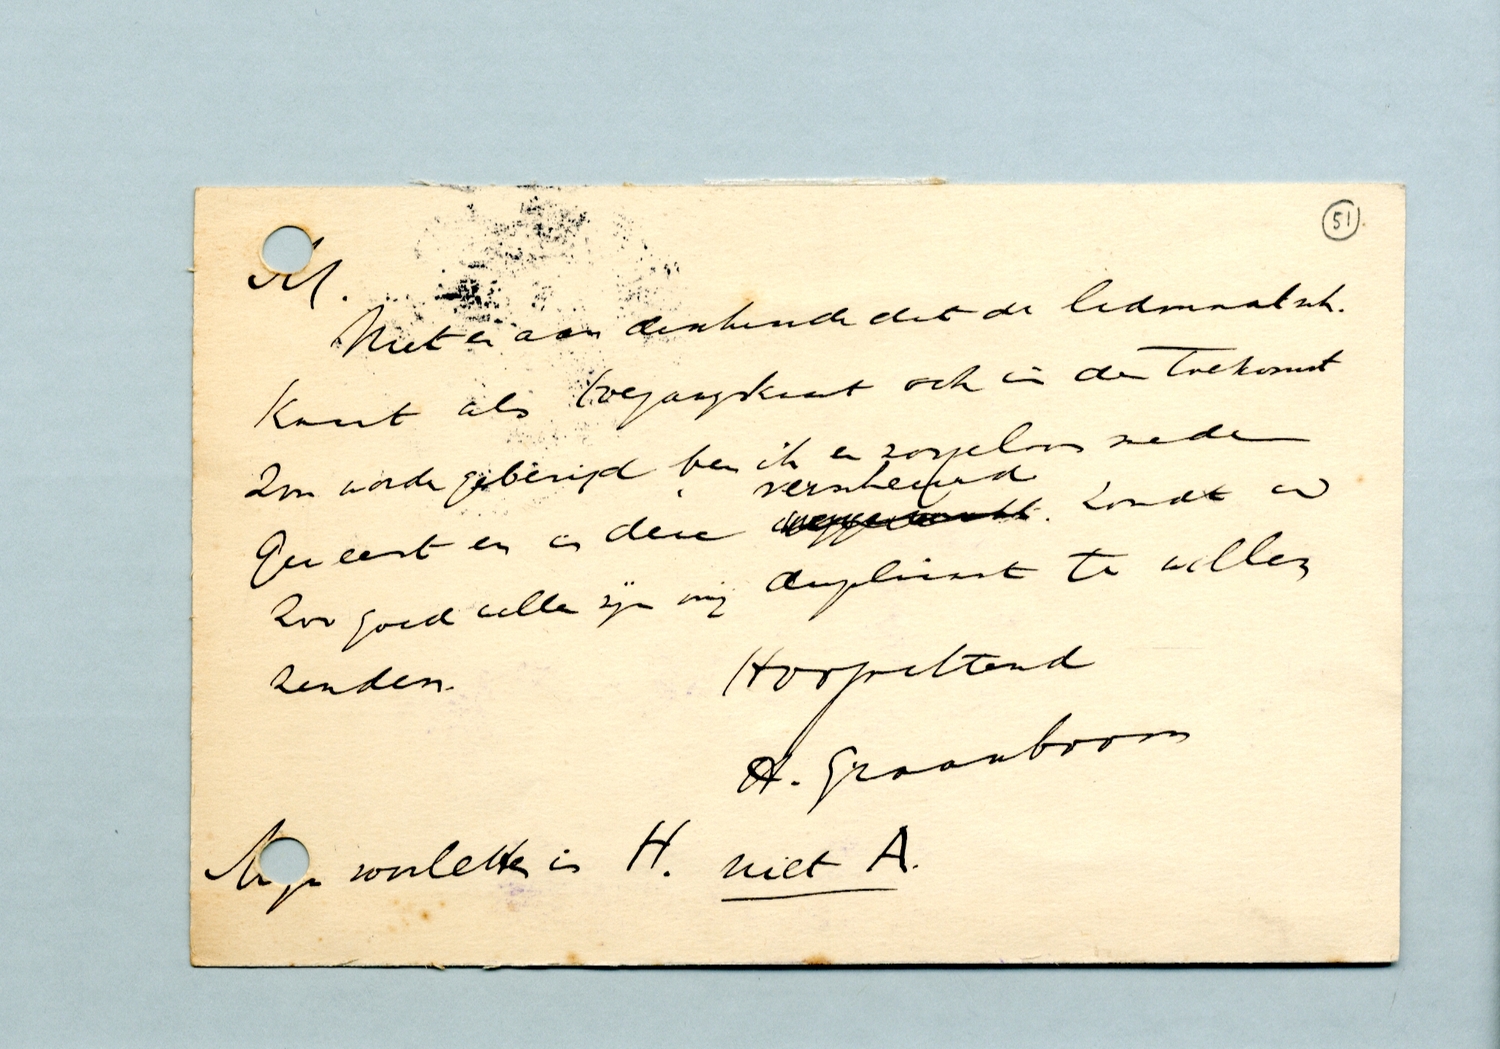 51
M.
Niet er aan denkende dat de lidmaatsch.
kaart als toegangskaart ook in de toekomst
zou worden gebezigd ben ik er zorgeloos mede
geweest en is deze verscheurd. Zoudt U
zoo goed willen zijn mij duplicaat te willen
zenden.
Hoogachtend
H. Graanboom
Mijn voorletter is H. niet A.